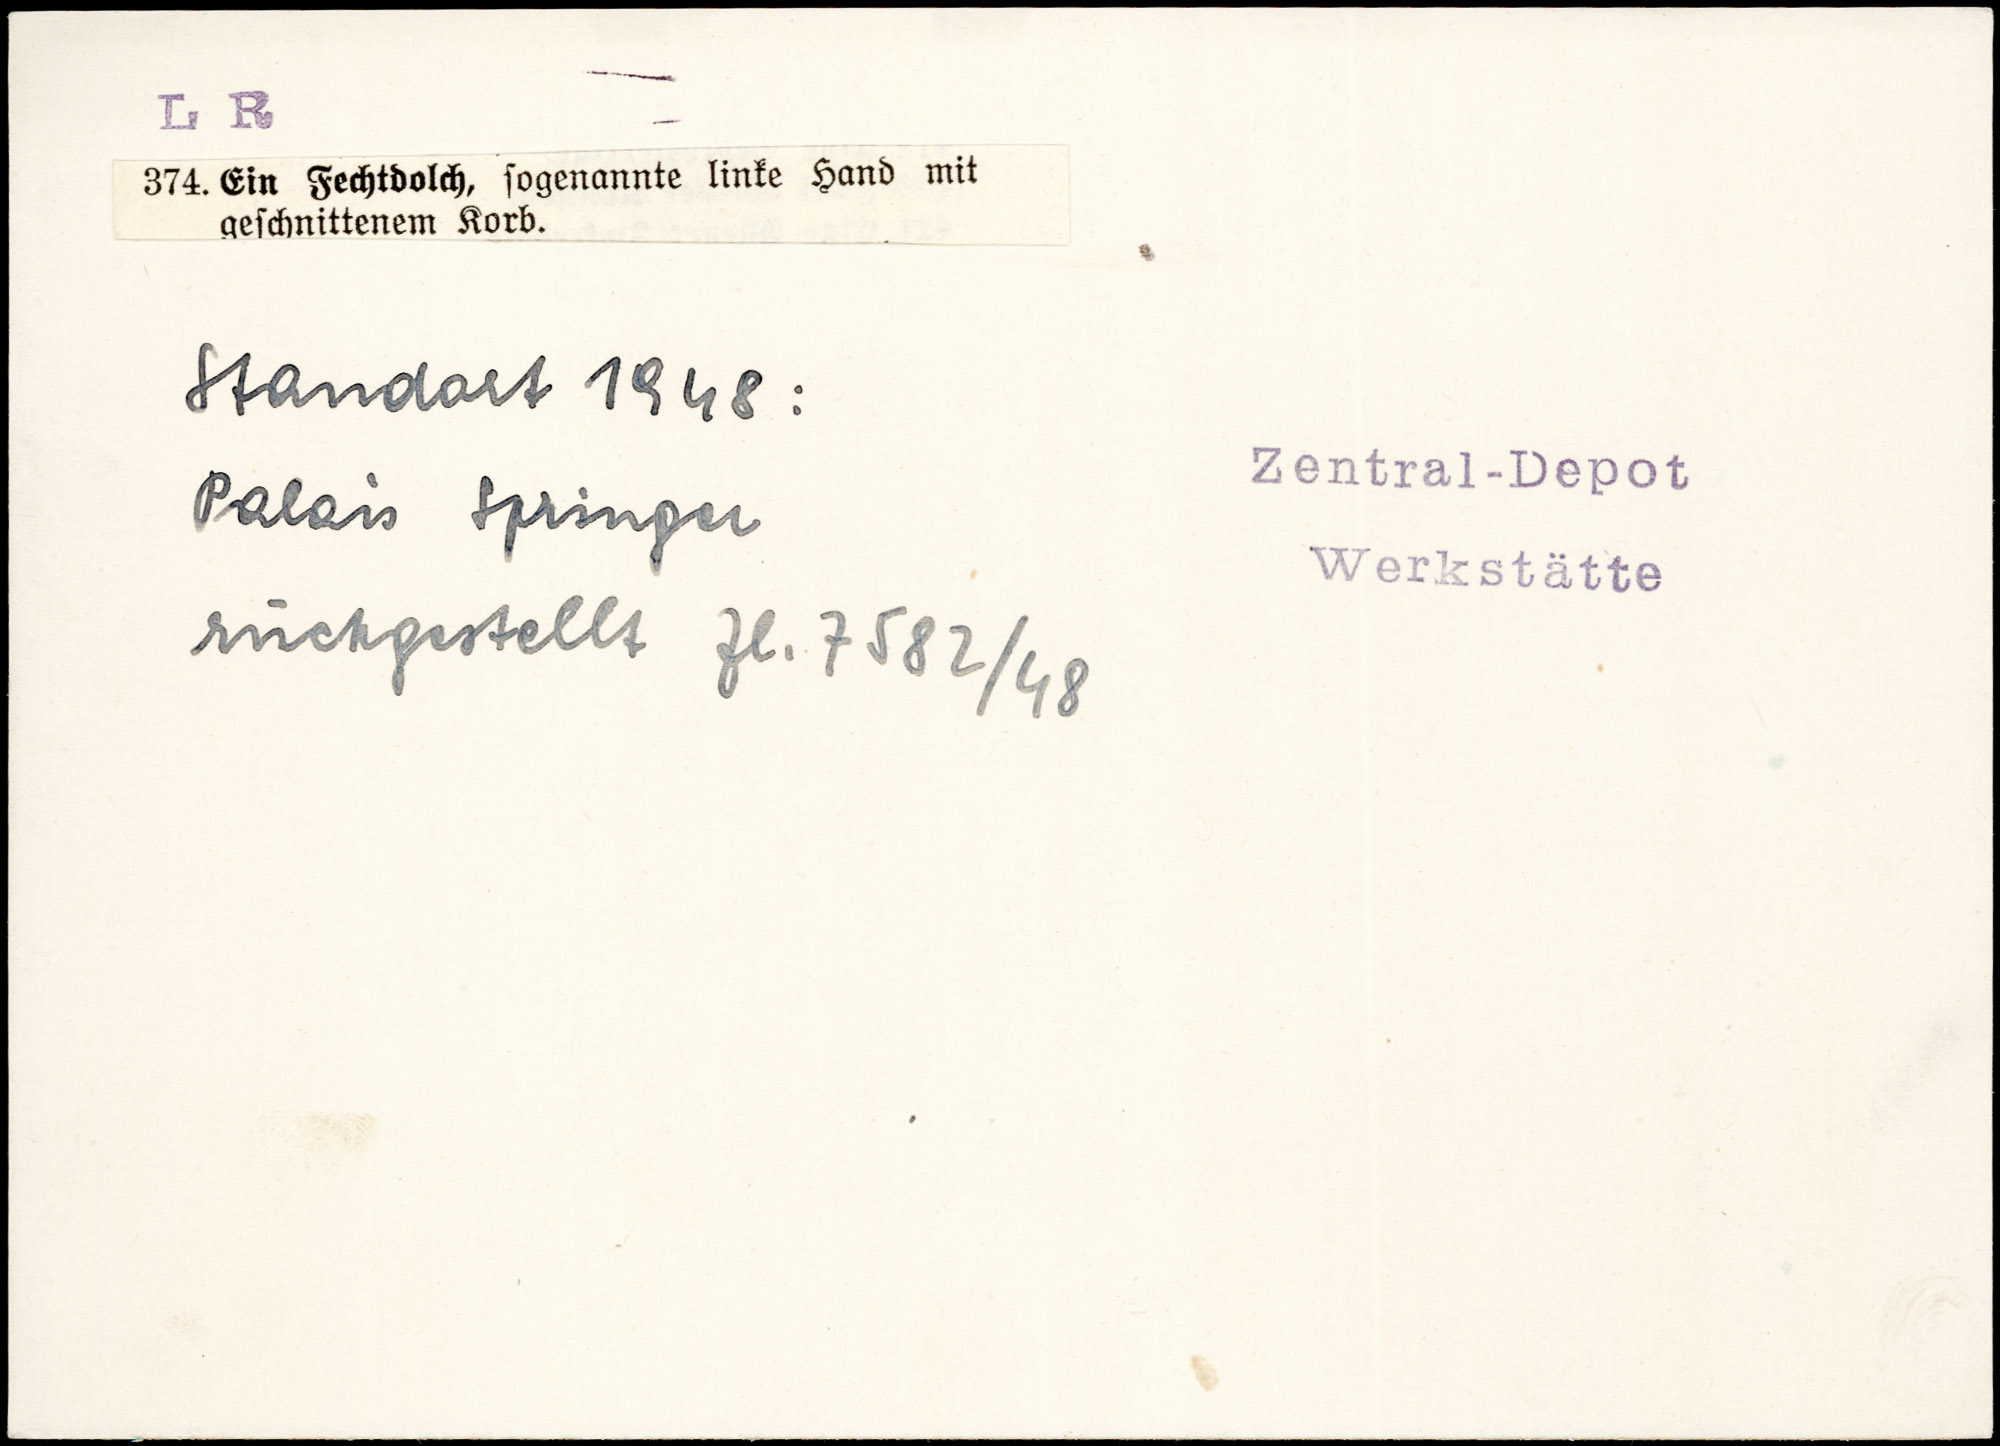 L R
374. Ein Fechtdolch, sogenannte linke Hand mit
geschnittenem Korb.
Standort 1948:
Palais Springer
Zentral-Depot
Werkstätte
rückgestellt Zl. 7582/48